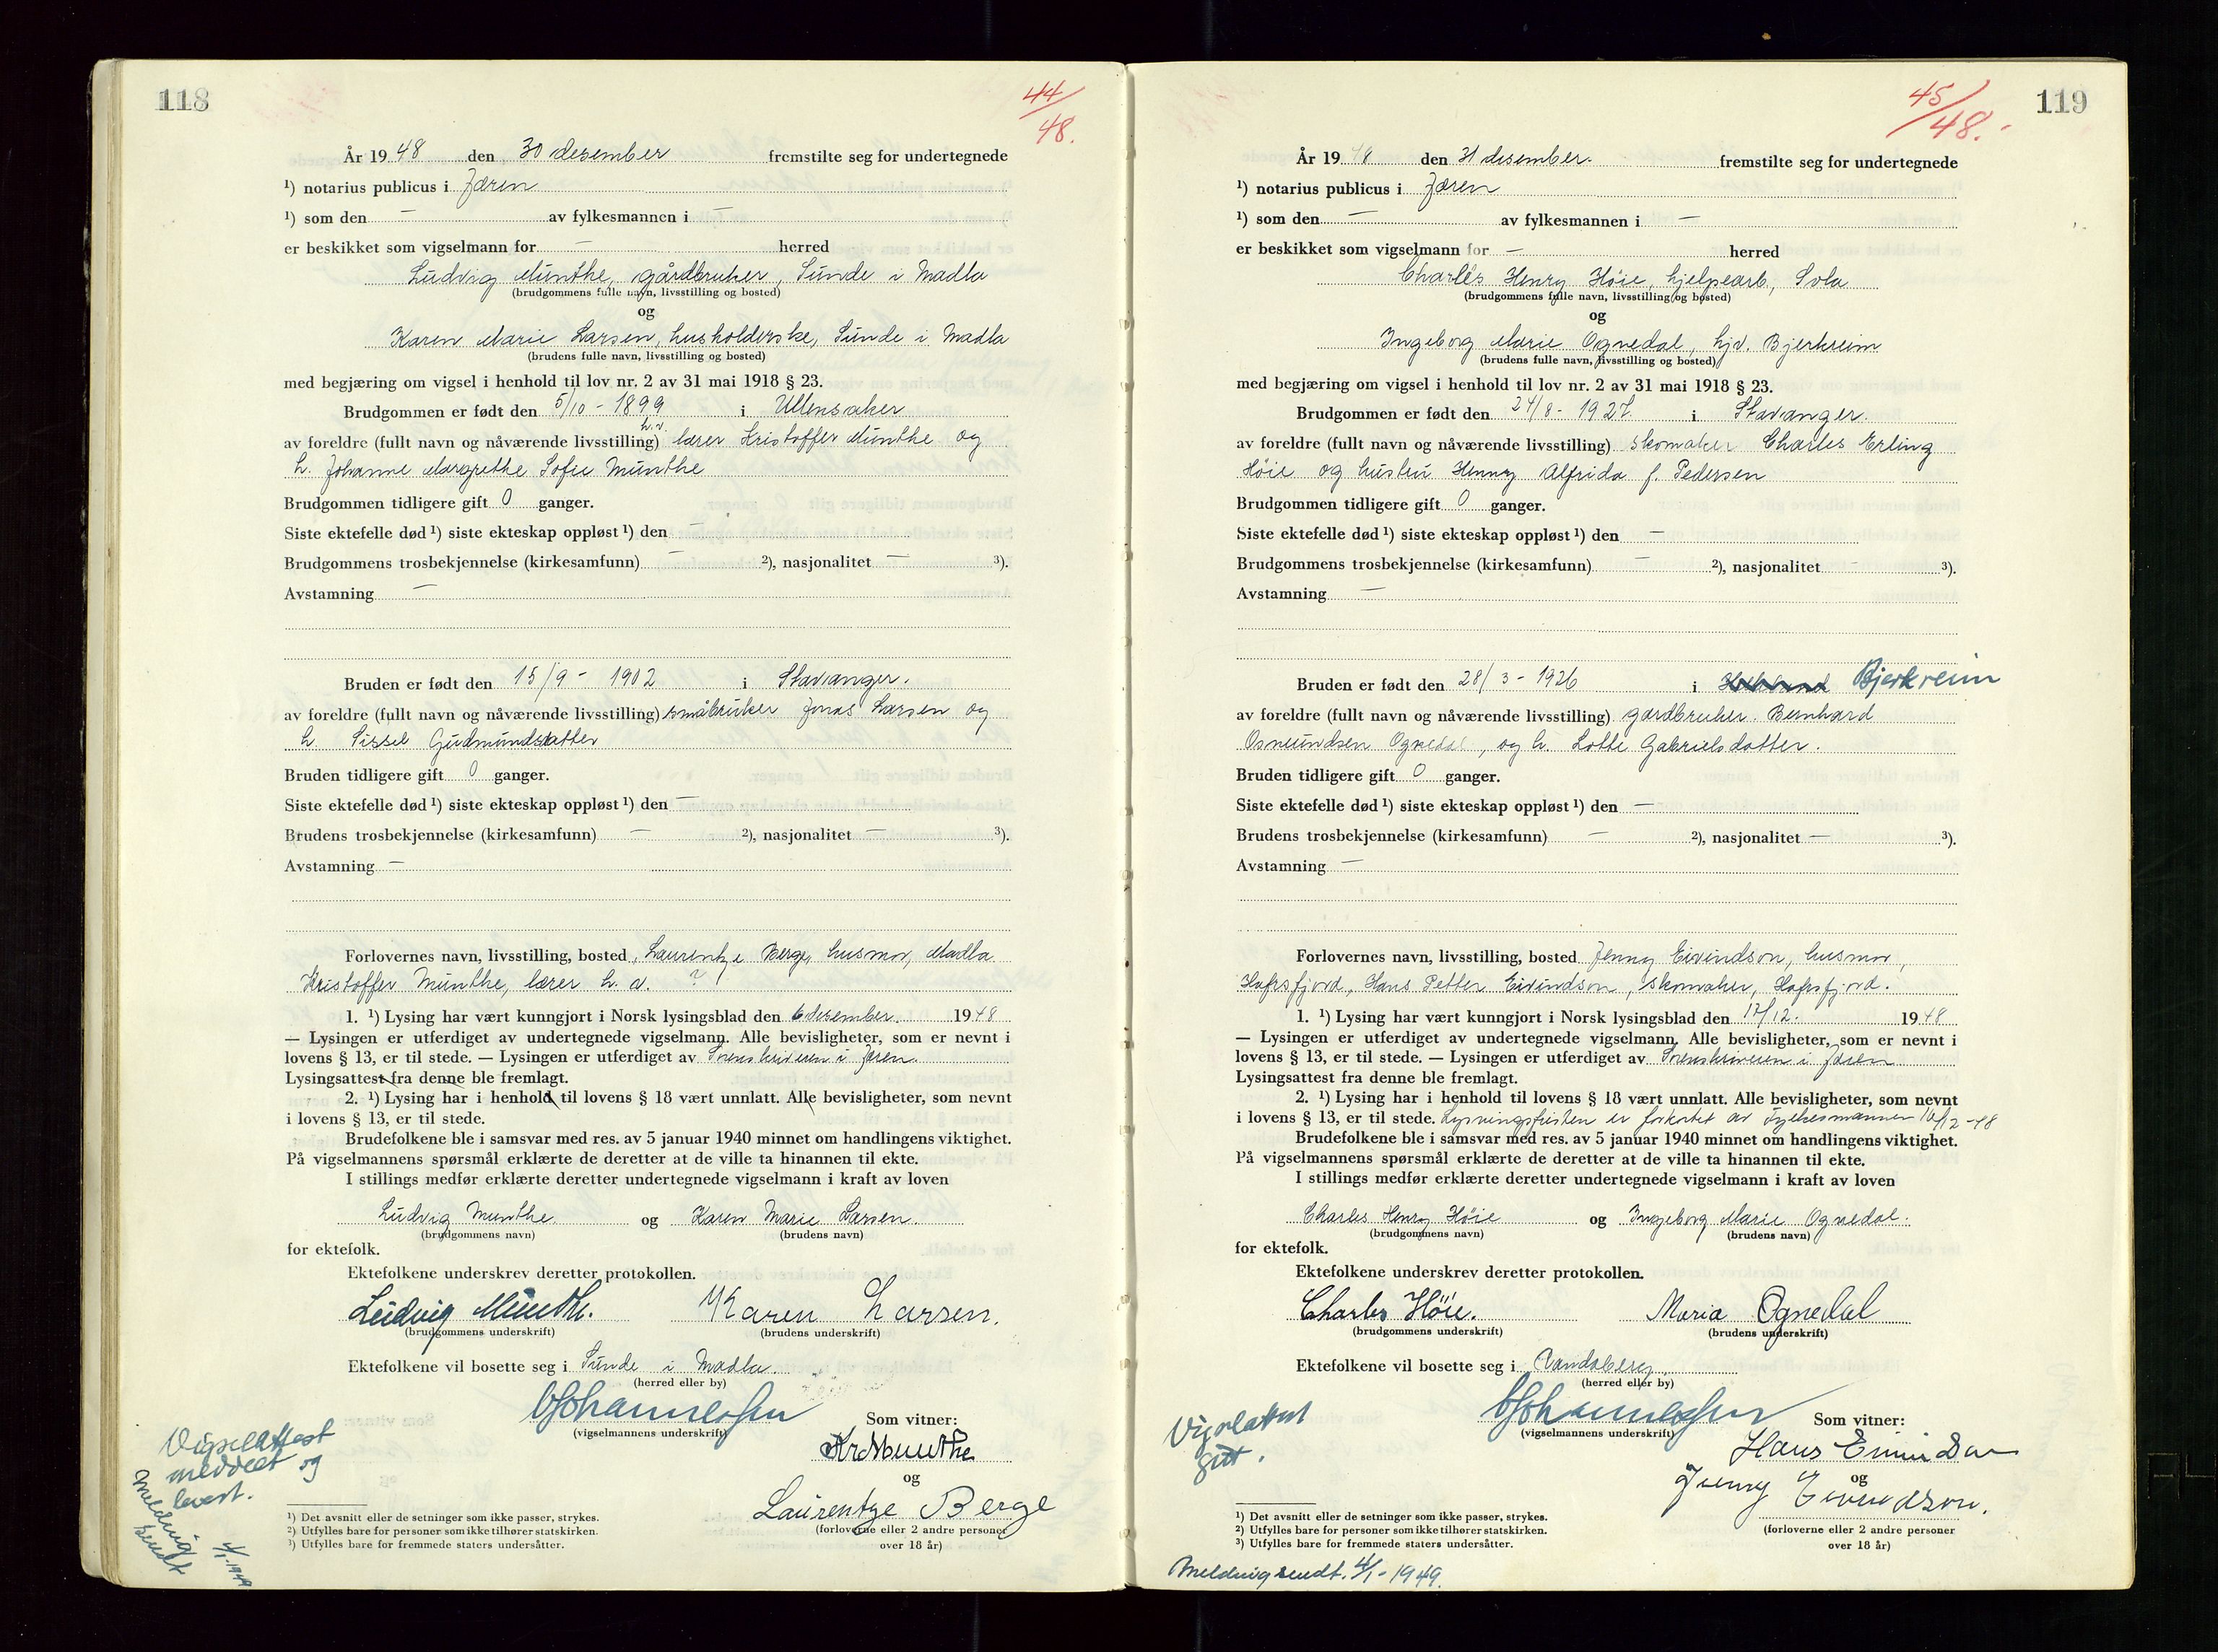 118
44/48.
År 1948 den 30 desember fremstilte seg for undertegnede
¹) notarius publicus i Jæren
¹) som den — av fylkesmannen i —
er beskikket som vigselmann for — herred
Ludvig Munthe, gårdbruker, Sunde i Madla
(brudgommens fulle navn, livsstilling og bosted)
og
Karen Marie Larsen, husholderske, Sunde i Madla
(brudens fulle navn, livsstilling og bosted)
med begjæring om vigsel i henhold til lov nr. 2 av 31 mai 1918 § 23.
Brudgommen er født den 5/10 - 1899 i Ullensaker
av foreldre (fullt navn og nåværende livsstilling) lærer h.v. Kristoffer Munthe og
h. Johanne Margrethe Sofie Munthe
Brudgommen tidligere gift 0 ganger.
Siste ektefelle død ¹) siste ekteskap oppløst ¹) den —
Brudgommens trosbekjennelse (kirkesamfunn) — ²), nasjonalitet — ³).
Avstamning —
Bruden er født den 15/9 - 1902 i Stavanger.
av foreldre (fullt navn og nåværende livsstilling) småbruker Jonas Larsen og
h. Sissel Gudmundsdatter
Bruden tidligere gift 0 ganger.
Siste ektefelle død ¹) siste ekteskap oppløst ¹) den —
Brudens trosbekjennelse (kirkesamfunn) — ²), nasjonalitet — ³).
Avstamning —
Forlovernes navn, livsstilling, bosted Laurentze Berge, husmor, Madla
Kristoffer Munthe, lærer h. a. ?
1. ¹) Lysing har vært kunngjort i Norsk lysingsblad den 6 desember 1948
— Lysingen er utferdiget av undertegnede vigselmann. Alle bevisligheter, som er nevnt i
lovens § 13, er til stede. — Lysingen er utferdiget av Sorenskriveren i Jæren.
Lysingsattest fra denne ble fremlagt.
2. ¹) Lysing har i henhold til lovens § 18 vært unnlatt. Alle bevisligheter, som nevnt
i lovens § 13, er til stede.
Brudefolkene ble i samsvar med res. av 5 januar 1940 minnet om handlingens viktighet.
På vigselmannens spørsmål erklærte de deretter at de ville ta hinannen til ekte.
I stillings medfør erklærte deretter undertegnede vigselmann i kraft av loven
Ludvig Munthe og Karen Marie Larsen.
(brudgommens navn) (brudens navn)
for ektefolk.
Ektefolkene underskrev deretter protokollen.
Ludvig Munthe. Karen Larsen.
(brudgommens underskrift) (brudens underskrift)
Ektefolkene vil bosette seg i Sunde i Madla
(herred eller by)
(vigselmannens underskrift)
Som vitner:
Kr Munthe
og
Laurentze Berge
(forloverne eller 2 andre personer
over 18 år)
Vigselattest
meddelt og
levert.
Melding
sendt
4/1-1949
¹) Det avsnitt eller de setninger som ikke passer, strykes.
²) Utfylles bare for personer som ikke tilhører statskirken.
³) Utfylles bare for fremmede staters undersåtter.
119
45/48.-
År 1948 den 31 desember. fremstilte seg for undertegnede
¹) notarius publicus i Jæren
¹) som den — av fylkesmannen i —
er beskikket som vigselmann for — herred
Charles Henry Høie, hjelpearb., Sola
(brudgommens fulle navn, livsstilling og bosted)
og
Ingeborg Marie Ognedal, hjv. Bjerkreim
(brudens fulle navn, livsstilling og bosted)
med begjæring om vigsel i henhold til lov nr. 2 av 31 mai 1918 § 23.
Brudgommen er født den 24/8 - 1927. i Stavanger.
av foreldre (fullt navn og nåværende livsstilling) skomaker Charles Erling
Høie og hustru Henny Alfrida f. Pedersen
Brudgommen tidligere gift 0 ganger.
Siste ektefelle død ¹) siste ekteskap oppløst ¹) den —
Brudgommens trosbekjennelse (kirkesamfunn) — ²), nasjonalitet — ³).
Avstamning —
Bruden er født den 28/3 - 1926 i Bjerkreim
av foreldre (fullt navn og nåværende livsstilling) gardbruker Bernhard
Osmundsen Ognedal, og h. Lotte Gabrielsdatter.
Bruden tidligere gift 0 ganger.
Siste ektefelle død ¹) siste ekteskap oppløst ¹) den —
Brudens trosbekjennelse (kirkesamfunn) — ²), nasjonalitet — ³).
Avstamning —
Forlovernes navn, livsstilling, bosted Jenny Eivindson, husmor,
Hafrsfjord, Hans Petter Eivindson, skomaker, Hafrsfjord.
1. ¹) Lysing har vært kunngjort i Norsk lysingsblad den 17/12. 1948
— Lysingen er utferdiget av undertegnede vigselmann. Alle bevisligheter, som er nevnt i
lovens § 13, er til stede. — Lysingen er utferdiget av Sorenskriveren i Jæren
Lysingsattest fra denne ble fremlagt.
2. ¹) Lysing har i henhold til lovens § 18 vært unnlatt. Alle bevisligheter, som nevnt
i lovens § 13, er til stede. Lysningsfristen er forkortet av fylkesmannen 16/12-48
Brudefolkene ble i samsvar med res. av 5 januar 1940 minnet om handlingens viktighet.
På vigselmannens spørsmål erklærte de deretter at de ville ta hinannen til ekte.
I stillings medfør erklærte deretter undertegnede vigselmann i kraft av loven
Charles Henry Høie og Ingeborg Marie Ognedal.
(brudgommens navn) (brudens navn)
for ektefolk.
Ektefolkene underskrev deretter protokollen.
Charles Höie. Maria Ognedal
(brudgommens underskrift) (brudens underskrift)
Ektefolkene vil bosette seg i Randaberg,
(herred eller by)
(vigselmannens underskrift)
Som vitner:
Hans Eivindson
og
Jenny Eivindson.
(forloverne eller 2 andre personer
over 18 år)
Vigselattest
gitt.
¹) Det avsnitt eller de setninger som ikke passer, strykes.
²) Utfylles bare for personer som ikke tilhører statskirken.
³) Utfylles bare for fremmede staters undersåtter.
Melding sendt. 4/1-1949.